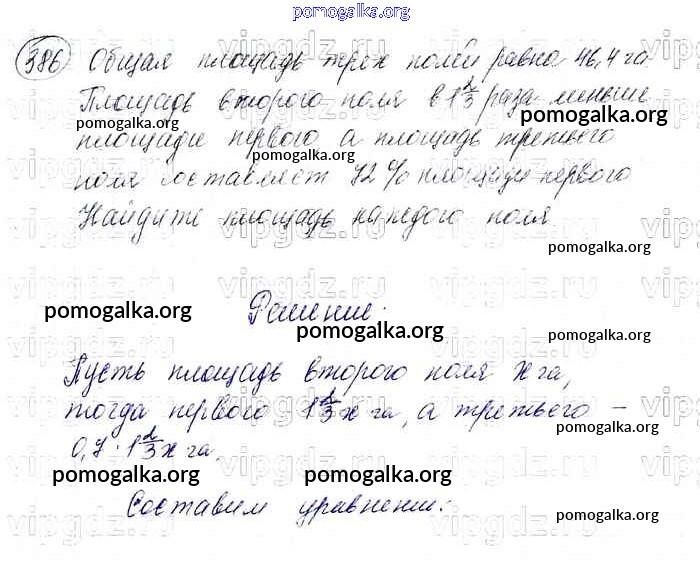 pomogalka.org
386 Общая площадь трех полей равна 46,4 га
Площадь второго поля в 1 2/3 раза меньше
pomogalka.org
площади первого а площадь третьего
pomogalka.org
поля составляет 72 % площади первого
Найдите площадь каждого поля
vipgdz.ru vipgdz.ru vipgdz.ru
pomogalka.org
pomogalka.org
Решение:
pomogalka.org
pomogalka.org
Пусть площадь второго поля x га,
тогда первого 1 2/3 x га, а третьего –
pomogalka.org
0,7 · 1 2/3 x га.
pomogalka.org
pomogalka.org
Составим уравнение:
pomogalka.org